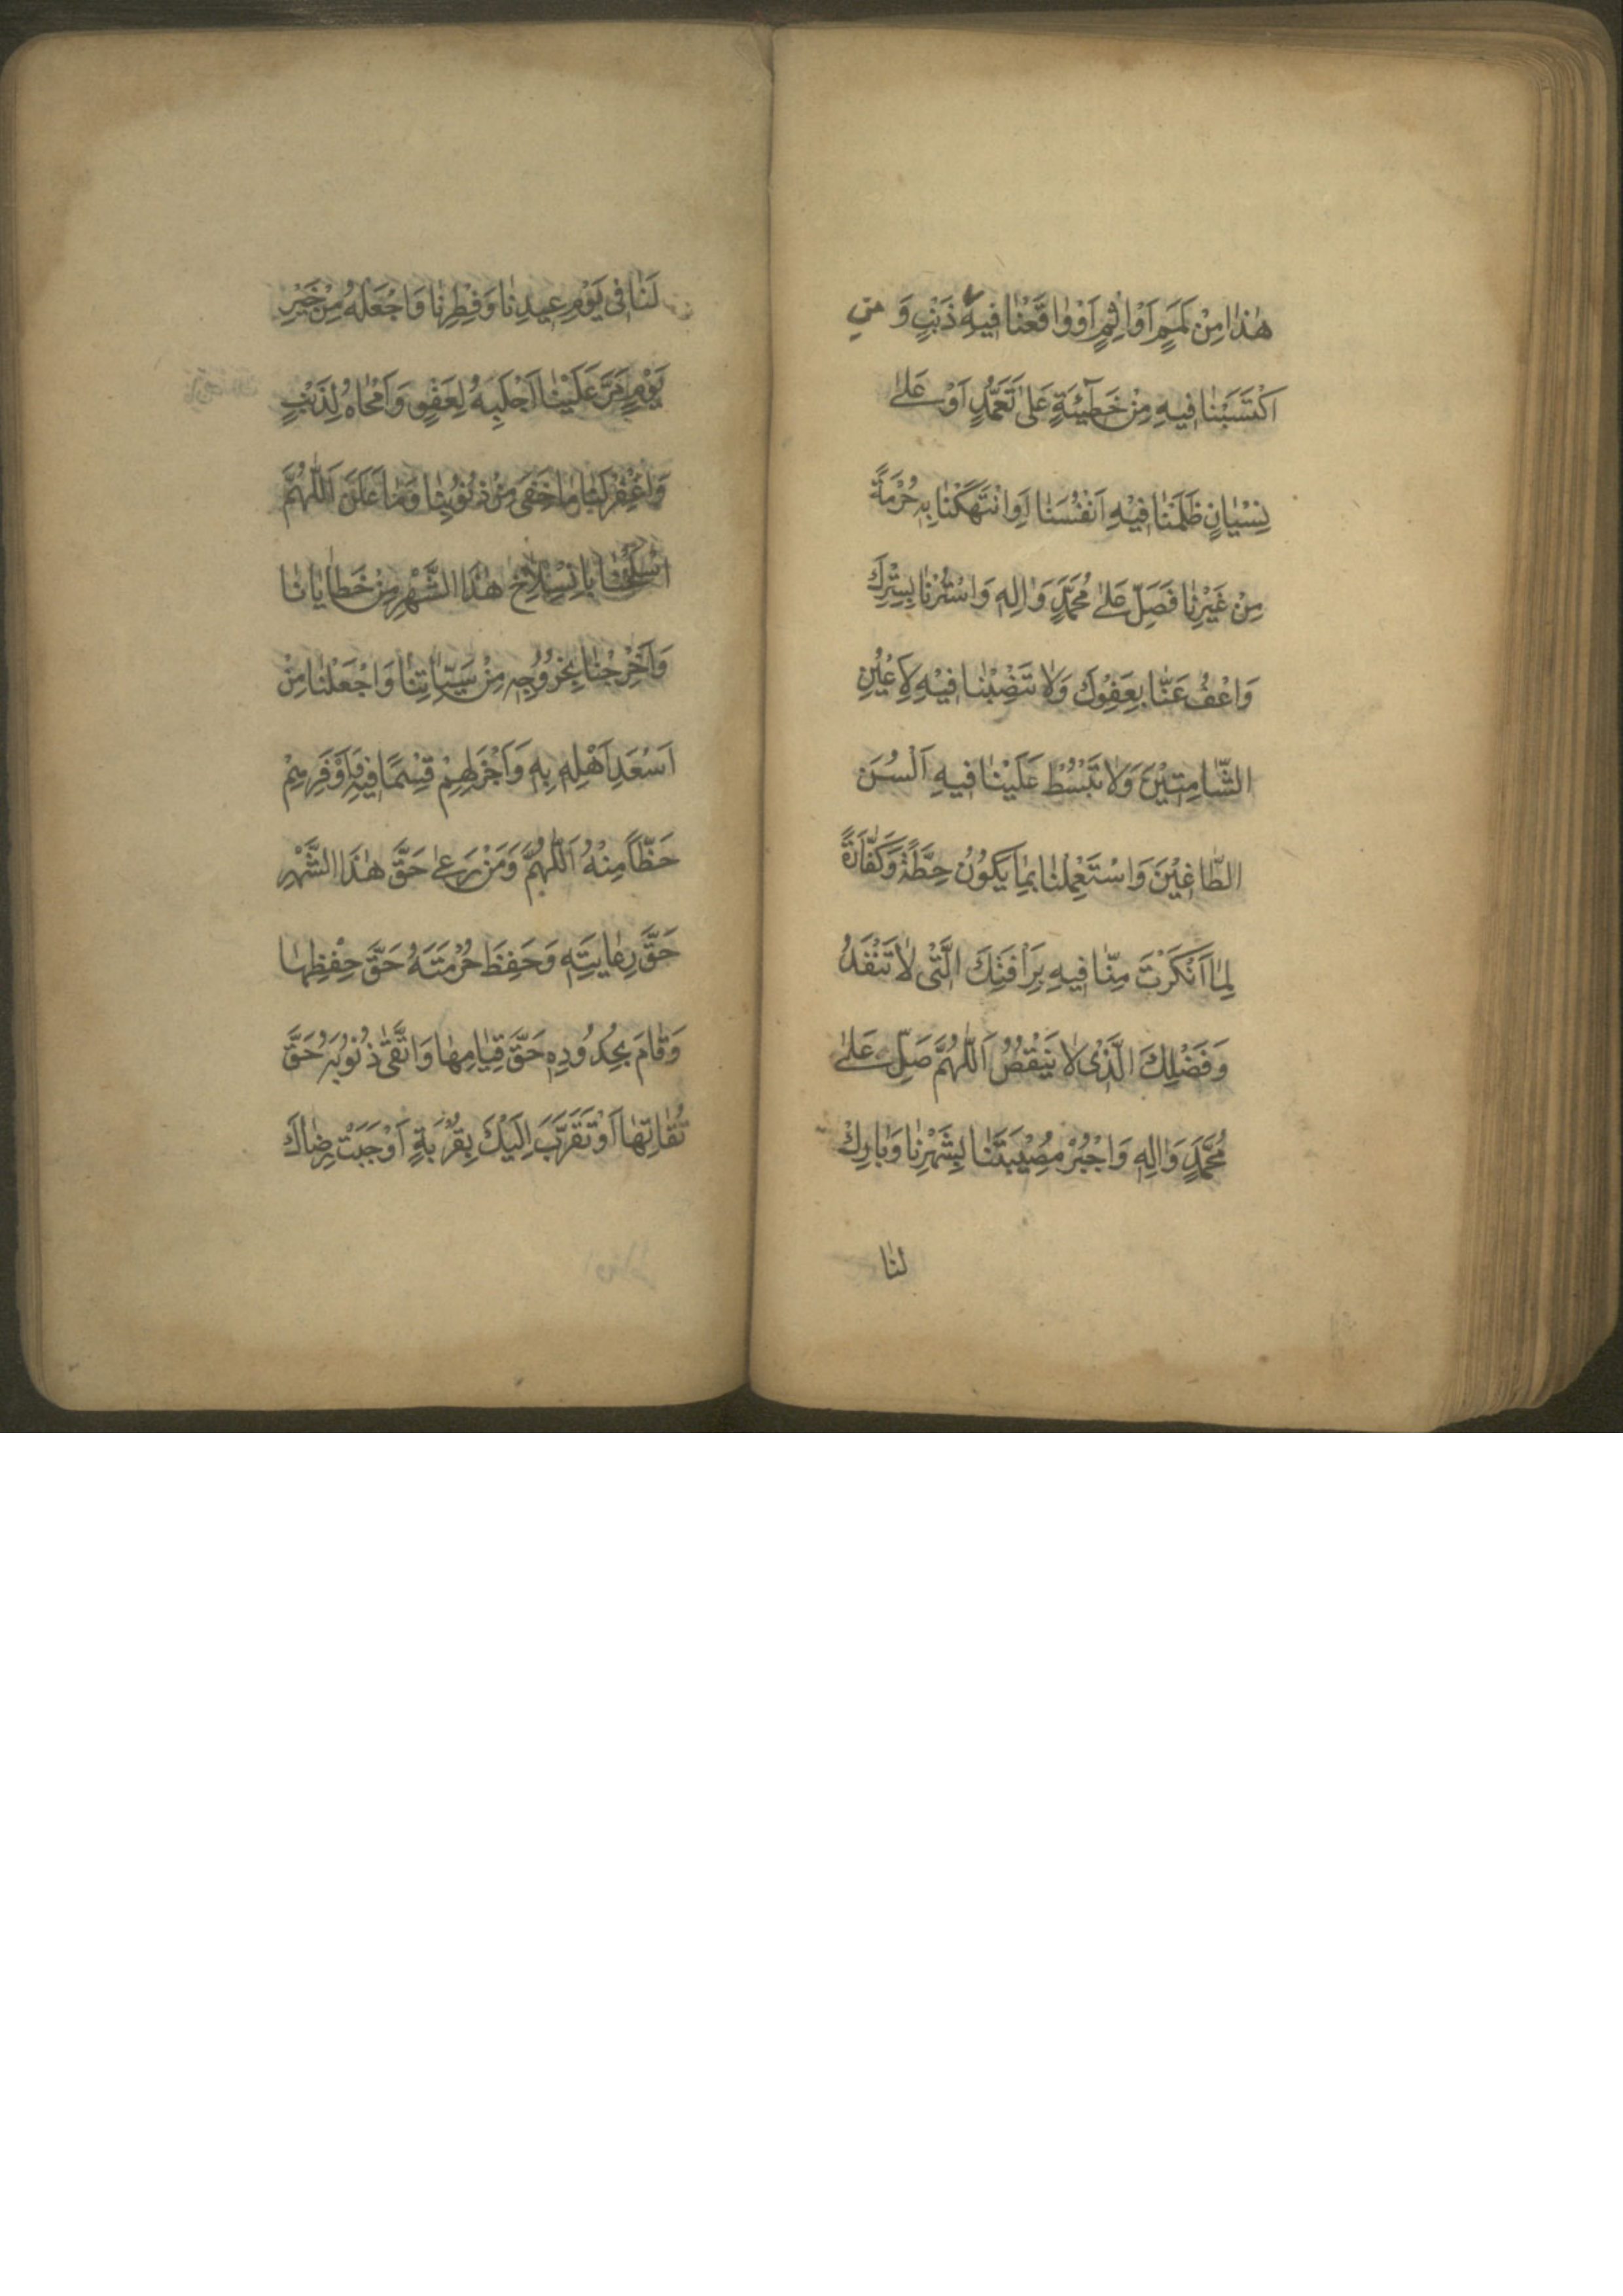 هٰذَا مِنْ لَمَمٍ اَوْ اِثْمٍ اَوْ وٰاقَعْنٰا فيهِ ذَنْبٍ وَ
اكْتَسَبْنٰا فيهِ مِنْ خَطٓيئَةٍ عَلىٰ تَعَمُّدٍ اَوْ عَلىٰ
نِسْيٰانٍ ظَلَمْنٰا فيْهِ اَنْفُسَنٰا اَوِ انْتَهَكْنٰا بِهِ حُرْمَةً
مِنْ غَيْرِنٰا فَصَلِّ عَلىٰ مُحَمَّدٍ وَاٰلِهِ وَاسْتُرْنٰا بِسِتْرِكَ
وَاعْفُ عَنّٰا بِعَفْوِكَ وَلاٰ تَنْصِبْنٰا فيْهِ لِاَعْيُنِ
الشّٰامِتيْنَ وَلاٰ تَبْسُطْ عَلَيْنٰا فيهِ اَلْسُنَ
الطّٰاغيْنَ وَاسْتَعْمِلْنٰا بِمٰا يَكُوْنُ حِطَّةً وَكَفّٰارَةً
لِمٰا اَنْكَرْتَ مِنّٰا فيهِ بِرَأْفَتِكَ الَّتْى لاٰ تَنْفَدُ
وَفَضْلِكَ الَّذْى لاٰ يَنْقُصُ اَللّٰهُمَّ صَلِّ عَلىٰ
مُحَمَّدٍ وَاٰلِهِ وَاجْبُرْ مُصْيبَتَنٰا بِشَهْرِنٰا وَبٰارِكْ
لنٰا
لَنٰا فى يَوْمِ عيدِنٰا وَفِطْرِنٰا وَاجْعَلْهُ مِنْ خَيْرِ
يَوْمٍ مَرَّ عَلَيْنٰا اَجْلَبِهُ لِعَفْوٍ وَاَمْحٰاهُ لِذَنْبٍ
وَاغْفِرْ لَنٰا مٰا خَفِىَ مِنْ ذُنُوْبِنٰا وَمٰا عَلَنَ اَللّٰهُمَّ
اسْلَخْنٰا بِانْسِلاٰخِ هٰذَا الشَّهْرِ مِنْ خَطٰايٰانٰا
وَاَخْرِجْنٰا بِخُرُوْجِهِ مِنْ سَيِّاٰتِنٰا وَاجْعَلْنٰا مِنْ
اَسْعَدِ اَهْلِهِ بِهِ وَاَجْزَلِهِمْ قِسْمًا فيهِ وَاَوْفَرِهِمْ
حَظًّا مِنْهُ اَللّٰهُمَّ وَمَنْ رَعىٰ حَقَّ هٰذَا الشَّهْرِ
حَقَّ رِعٰايَتِهِ وَحَفِظَ حُرْمَتَهُ حَقَّ حِفْظِهٰا
وَقٰامَ بِحُدُوْدِهِ حَقَّ قِيٰامِهٰا وَاتَّقىٰ ذُنُوْبَهُ حَقَّ
تُقٰاتِهٰا اَوْ تَقَرَّبَ اِلَيْكَ بِقُرْبَةٍ اَوْجَبَتْ رِضٰاكَ